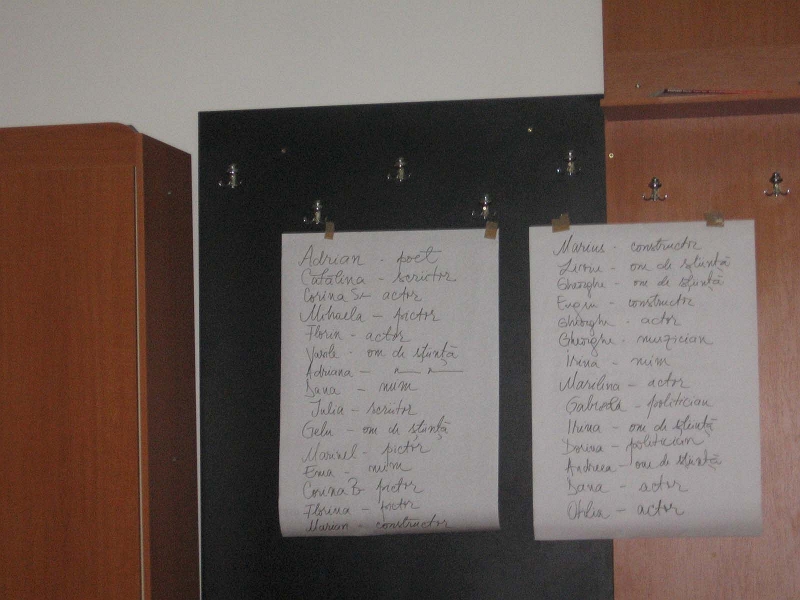 Adrian - poet
Catalina - scriitor
Corina St. - actor
Mihaela - pictor
Florin - actor
Vasile - om de știință
Adriana - " "
Dana - mim
Iulia - scriitor
Gelu - om de știință
Marinel - pictor
Ema - mim
Corina B - pictor
Florina - pictor
Marian - constructor
Marius - constructor
Liviu - om de știință
Gheorghe - om de știință
Eugen - constructor
Gheorghe - actor
Gheorghe - muzician
Irina - mim
Marilena - actor
Gabriela - politician
- om de știință
Dorina - politician
Andreea - om de știință
Dana - actor
- actor